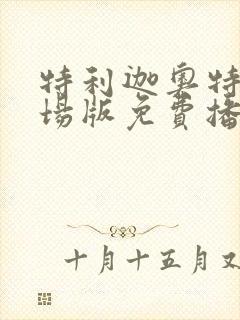 特利迦奥特
場版免費播
十月十五月又